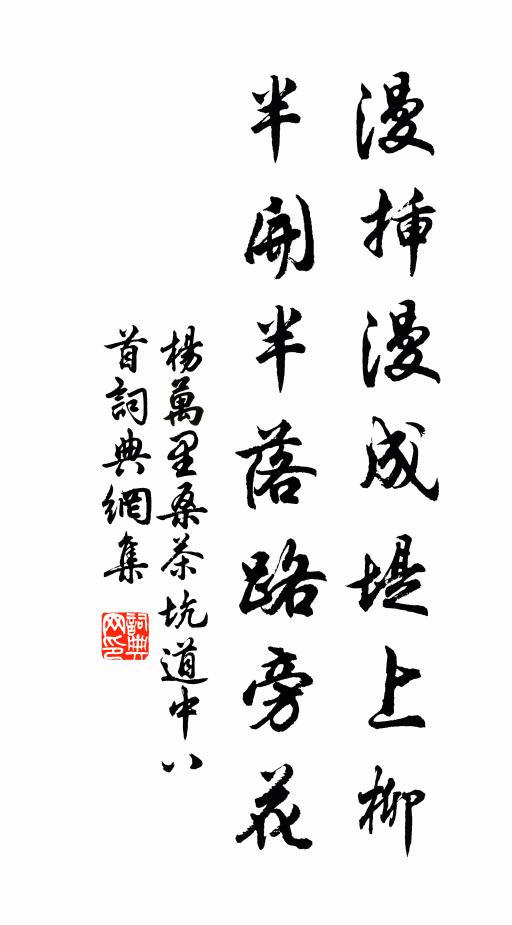 漫插漫成堤上柳
半開半落路旁花
楊萬里桑茶坑道中八
首詞典網集
詞典網印